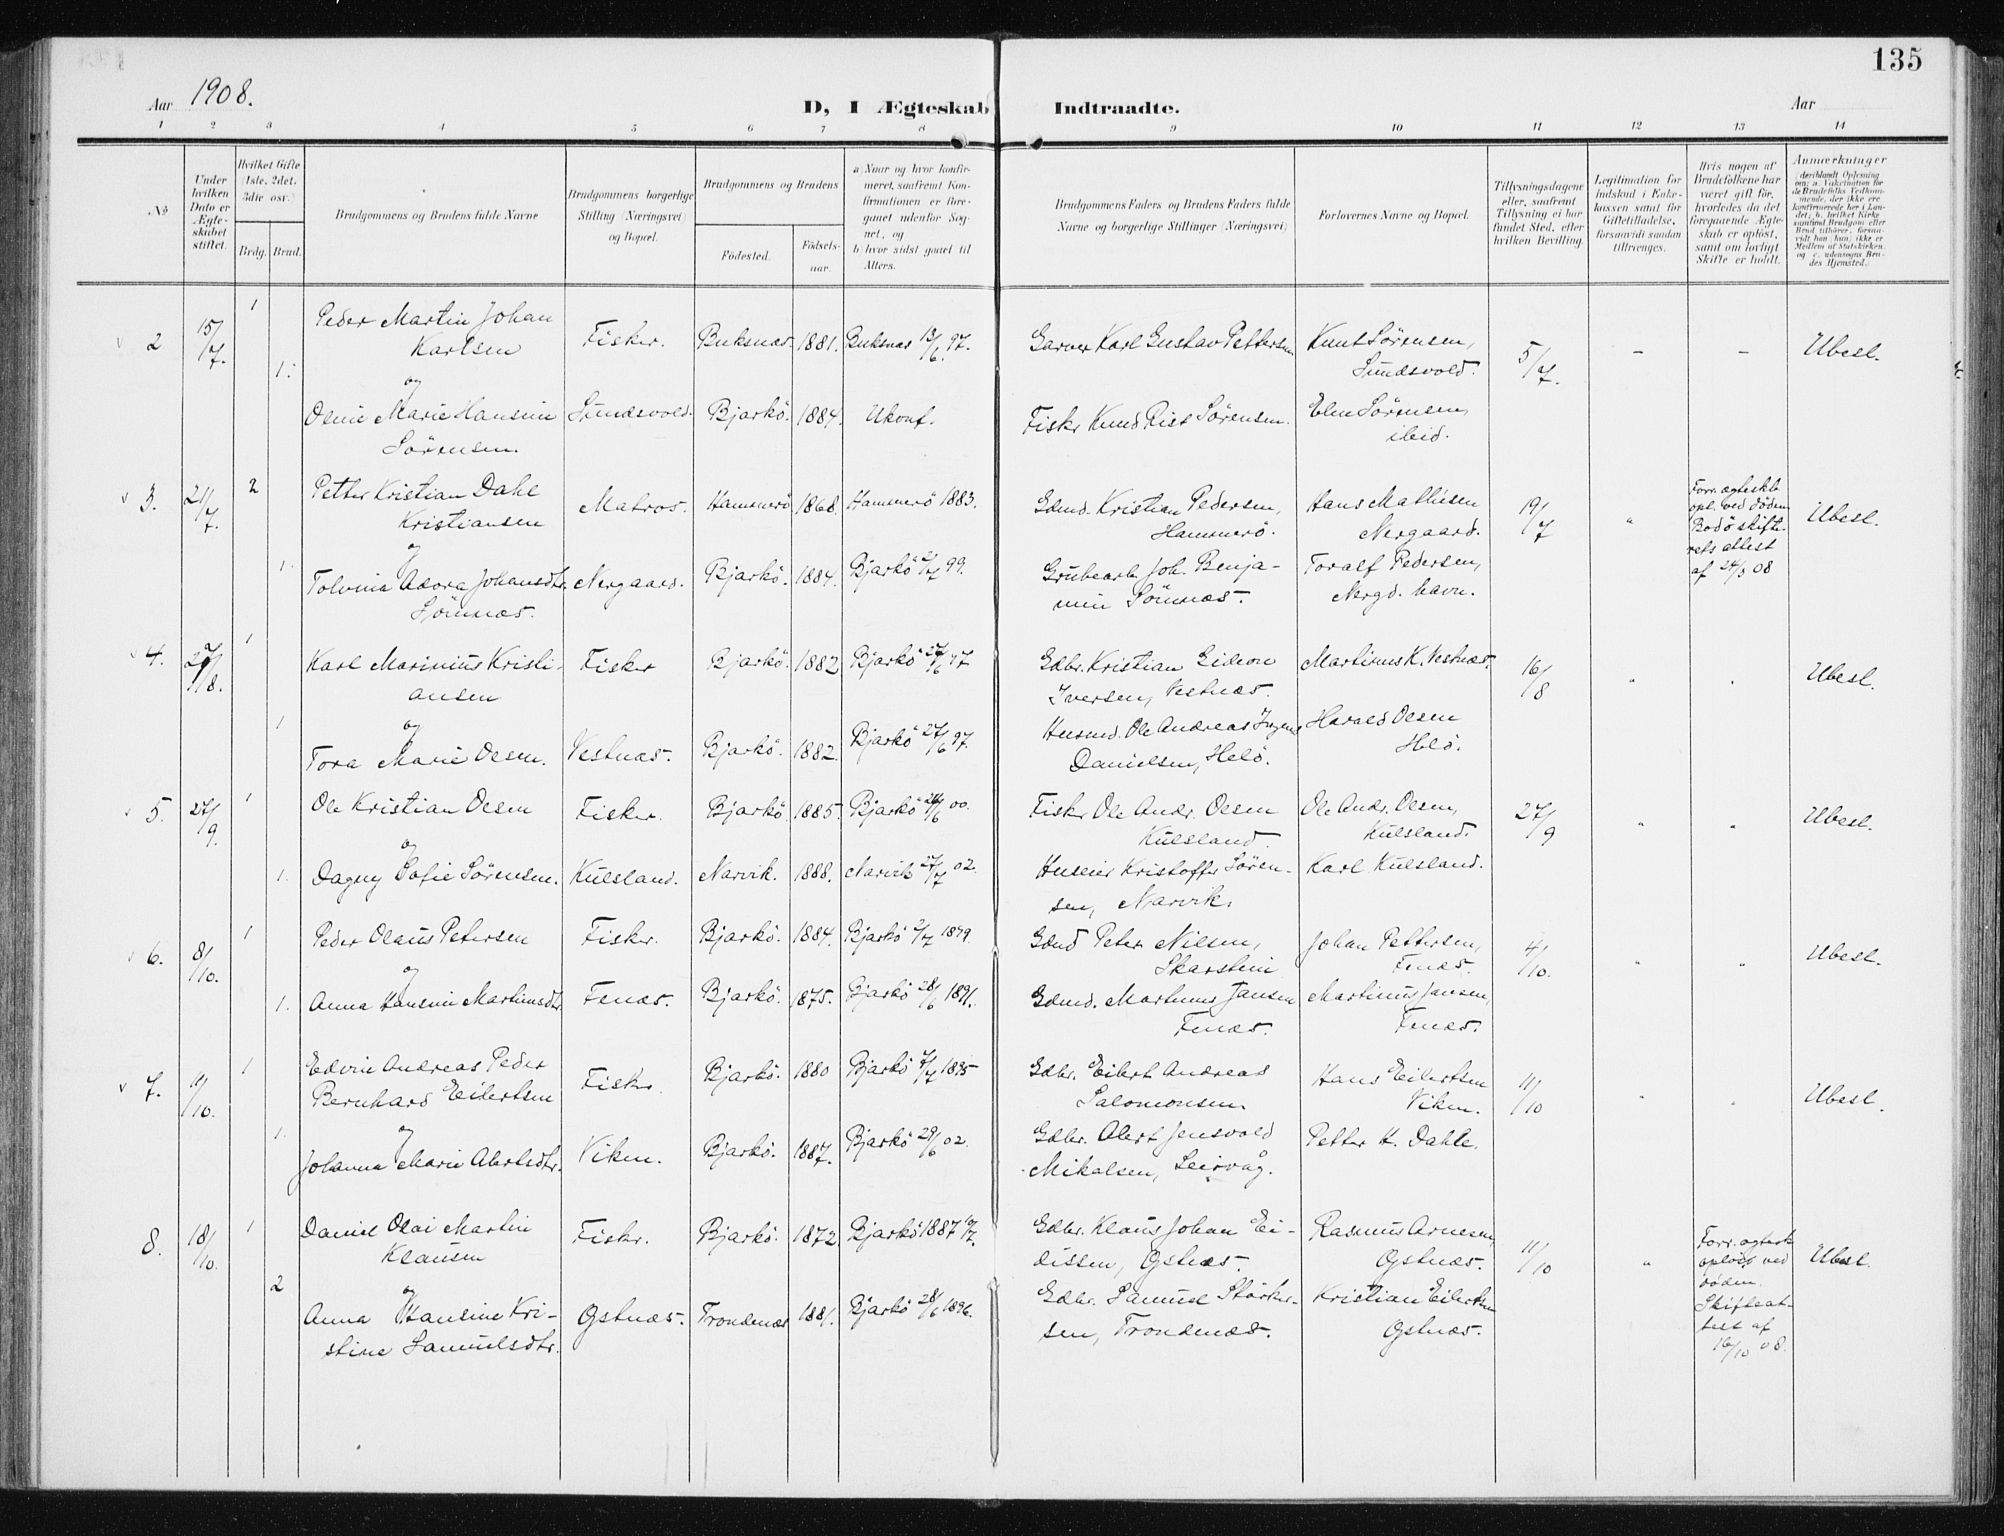 135
Aar 1908.
D, I Ægteskab Indtraadte.
Aar
1 2 3 4 5 6 7 8 9 10 11 12 13 14
No
Under hvilken Dato er Ægteskabet stiftet.
Hvilket Gifte (1ste, 2det, 3die osv.)
Brdg. Brud.
Brudgommens og Brudens fulde Navne
Brudgommens borgerlige Stilling (Næringsvei) og Bopæl.
Brudgommens og Brudens
Fødested.
Fødselsaar.
a) Naar og hvor konfirmeret, saafremt Konfirmationen er foregaaet udenfor Sognet, og
b) hvor sidst gaaet til Alters.
Brudgommens Faders og Brudens Faders fulde Navne og borgerlige Stillinger (Næringsvei)
Forlovernes Navne og Bopæl.
Tillysningsdagene eller, saafremt Tillysning ei har fundet Sted, efter hvilken Bevilling.
Legitimation for Indskud i Enkekassen samt for Giftetilladelse, forsaavidt saadan tiltrænges.
Hvis nogen af Brudefolkene har været gift før, hvorledes da det foregaaende Ægteskab er opløst, samt om lovligt Skifte er holdt.
Anmærkninger
2 15/7. 1 Peder Martin Johan Fisker. Buksnæs. 1881. Buksnæs 13/6 97. Garver Karl Gustav Pettersen Knut Sørensen, 5/7. - - Ubesl.
Karlsen Sundsvold.
1. og
Marie Hansine Sundsvold. Bjarkö. 1884. Ukonf. Fisker Knud Rist Sørensen. Sørensen,
Sørensen. ibid.
3. 21/7. 2 Petter Kristian Dahl Matros. Hammerö 1868. Hammerö 1883. Gdmd. Kristian Pedersen, Hans Mathisen 19/7 " Forr. ægteskb. Ubesl.
Kristiansen Hammerö. Nergaard. opl. ved Döden
og Bodö skifterets attest
1. Tolvina Adora Johansdtr. Nergaard. Bjarkö. 1884. Bjarkö 2/7 99. Grubearb. Joh. Benja- Toralf Pedersen, af 24/3 08
Sömnæs. min Sömnæs. Nergd. havn.
4. 1 Karl Marinius Kristi- Fisker Bjarkö. 1882 Bjarkö 27/6 97 Gdbr. Kristian Gideon Martinus K. Vestnæs. 16/8 " " Ubesl.
ansen Iversen, Vestnæs.
1 og
Tora Marie Olsen. Vestnæs. Bjarkö. 1882. Bjarkö 27/6 97. Husmd. Ole Andreas Harald Olsen
Danielsen, Helö. Helö.
5. 27/9. 1 Ole Kristian Olsen Fisker. Bjarkö. 1885. Bjarkö 24/6 00. Fisker Ole Andr. Olsen Ole Andr. Olsen, 27/9 " " Ubesl.
og Kulsland. Kulsland.
1. Dagny Sofie Sørensen. Kulsland. Narvik. 1888. Narvik 27/7 02. Huseier Kristoffer Søren- Karl Kulsland.
sen, Narvik.
6. 8/10. 1 Peder Olaus Petersen Fisker. Bjarkö. 1884. Bjarkö 2/7 1899. Gdmd Peter Nilsen, Johan Pettersen, 4/10. " " Ubesl.
og Skarstein Fenæs.
1. Anna Hansine Martinusdtr. Fenæs. Bjarkö. 1875. Bjarkö 28/6 1891. Gdmd. Martinus Jansen Martinus Jansen,
Fenæs. Fenæs.
7. 11/10. 1 Edvin Andreas Peder Fisker. Bjarkö. 1880 Bjarkö 7/7 1895 Gdbr. Eilert Andreas Hans Eilertsen 11/10 " " Ubesl.
Bernhard Eilertsen Salomonsen Viken.
1. og
Johanna Marie Alertsdtr. Viken. Bjarkö. 1887. Bjarkö 29/6 02. Gdbr. Alert Jensvold Petter H. Dahle.
Mikalsen, Leirvåg.
8. 18/10. 1 Daniel Olai Martin Fisker. Bjarkö. 1872. Bjarkö 1887 Gdbr. Klaus Johan Ei- Rasmus Arnesen, 11/10 " Forr. ægtesk. Ubesl.
Klausen dissen, Gstnæs. Gstnæs. oplöst ved
2 og döden.
Anna Hansine Kri- Gstnæs. Trondenæs 1881. Bjarkö 28/6 1896. Gdbr. Samuel Störker- Kristian Eilertsen Skifteat-
stine Samuelsdtr. sen, Trondenæs. Gstnæs. test af
16/10 08.